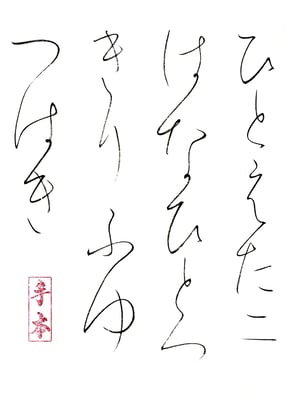 ひとえた二
はなひとつ
きり ふゆ
つはき
手本